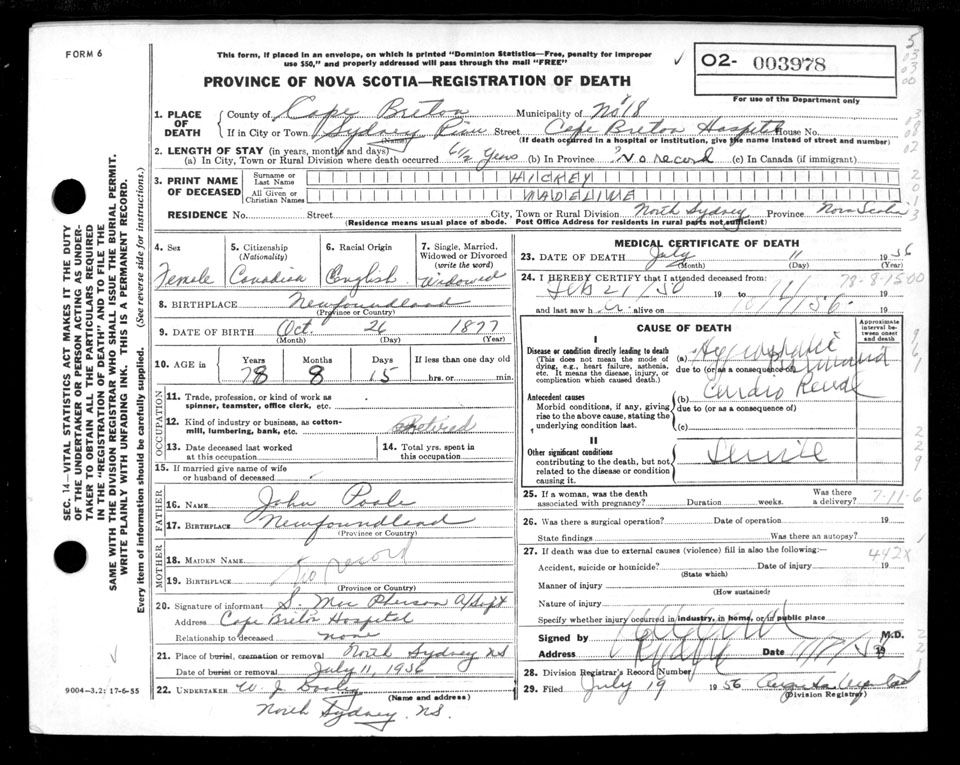 FORM 6
This form, if placed in an envelope, on which is printed "Dominion Statistics—Free, penalty for improper
use $50," and properly addressed will pass through the mail "FREE"
PROVINCE OF NOVA SCOTIA—REGISTRATION OF DEATH
02- 003978
For use of the Department only
1. PLACE OF DEATH
County of Cape Breton Municipality of No 18
If in City or Town Sydney River Street Cape Breton Hospital House No.
(Name) (If death occurred in a hospital or institution, give the name instead of street and number)
2. LENGTH OF STAY (in years, months and days)
(a) In City, Town or Rural Division where death occurred 6 1/2 Years (b) In Province No record (c) In Canada (if immigrant)
3. PRINT NAME OF DECEASED
Surname or Last Name HICKEY
All Given or Christian Names MADELINE
RESIDENCE No. Street City, Town or Rural Division North Sydney Province Nova Scotia
(Residence means usual place of abode. Post Office Address for residents in rural parts not sufficient)
4. Sex Female
5. Citizenship (Nationality) Canadian
6. Racial Origin English
7. Single, Married, Widowed or Divorced (write the word) Widowed
8. BIRTHPLACE Newfoundland
(Province or Country)
9. DATE OF BIRTH Oct. 26 1877
(Month) (Day) (Year)
10. AGE in Years Months Days If less than one day old
78 8 15 hrs. or min.
OCCUPATION
11. Trade, profession, or kind of work as
spinner, teamster, office clerk, etc.
12. Kind of industry or business, as cotton-
mill, lumbering, bank, etc. Retired
13. Date deceased last worked
at this occupation
14. Total yrs. spent in
this occupation
15. If married give name of wife
or husband of deceased
FATHER
16. Name John Poole
17. BIRTHPLACE Newfoundland
(Province or Country)
MOTHER
18. MAIDEN NAME
19. BIRTHPLACE No record
(Province or Country)
20. Signature of informant S. MacPherson A/Supt
Address Cape Breton Hospital
Relationship to deceased none
21. Place of burial, cremation or removal North Sydney NS
Date of burial or removal July 11, 1956
22. UNDERTAKER W J
(Name and address)
North Sydney. N.S.
MEDICAL CERTIFICATE OF DEATH
23. DATE OF DEATH July 11 1956
(Month) (Day) (Year)
24. I HEREBY CERTIFY that I attended deceased from 78-8-1500
Feb 21/50 19 to 19
and last saw h alive on 19
CAUSE OF DEATH
Approximate interval between onset and death
I
Disease or condition directly leading to death
(This does not mean the mode of
dying, e.g., heart failure, asthenia,
etc. It means the disease, injury, or
complication which caused death.)
(a) Hypostatic
due to (or as a consequence of) Pneumonia
Antecedent causes
Morbid conditions, if any, giving
rise to the above cause, stating the
underlying condition last.
(b) Cardio Renal
due to (or as a consequence of)
(c)
II
Other significant conditions
contributing to the death, but not
related to the disease or condition
causing it.
Senile
25. If a woman, was the death
associated with pregnancy? Duration weeks. Was there a delivery? 7-11-6
26. Was there a surgical operation? Date of operation 19
State findings Was there an autopsy?
27. If death was due to external causes (violence) fill in also the following:— 442X
Accident, suicide or homicide? Date of injury 19
(State which)
Manner of injury
(How sustained)
Nature of injury
Specify whether injury occurred in industry, in home, or in public place
Signed by M.D.
Address Date 19
28. Division Registrar's Record Number
29. Filed July 19 1956
(Division Registrar)
SEC. 14—VITAL STATISTICS ACT MAKES IT THE DUTY
OF THE UNDERTAKER OR PERSON ACTING AS UNDER-
TAKER TO OBTAIN ALL THE PARTICULARS REQUIRED
IN THE "REGISTRATION OF DEATH" AND TO FILE THE
SAME WITH THE DIVISION REGISTRAR WHO SHALL ISSUE THE BURIAL PERMIT.
WRITE PLAINLY WITH UNFADING INK. THIS IS A PERMANENT RECORD.
Every item of information should be carefully supplied. (See reverse side for instructions.)
9004-3.2: 17-6-55